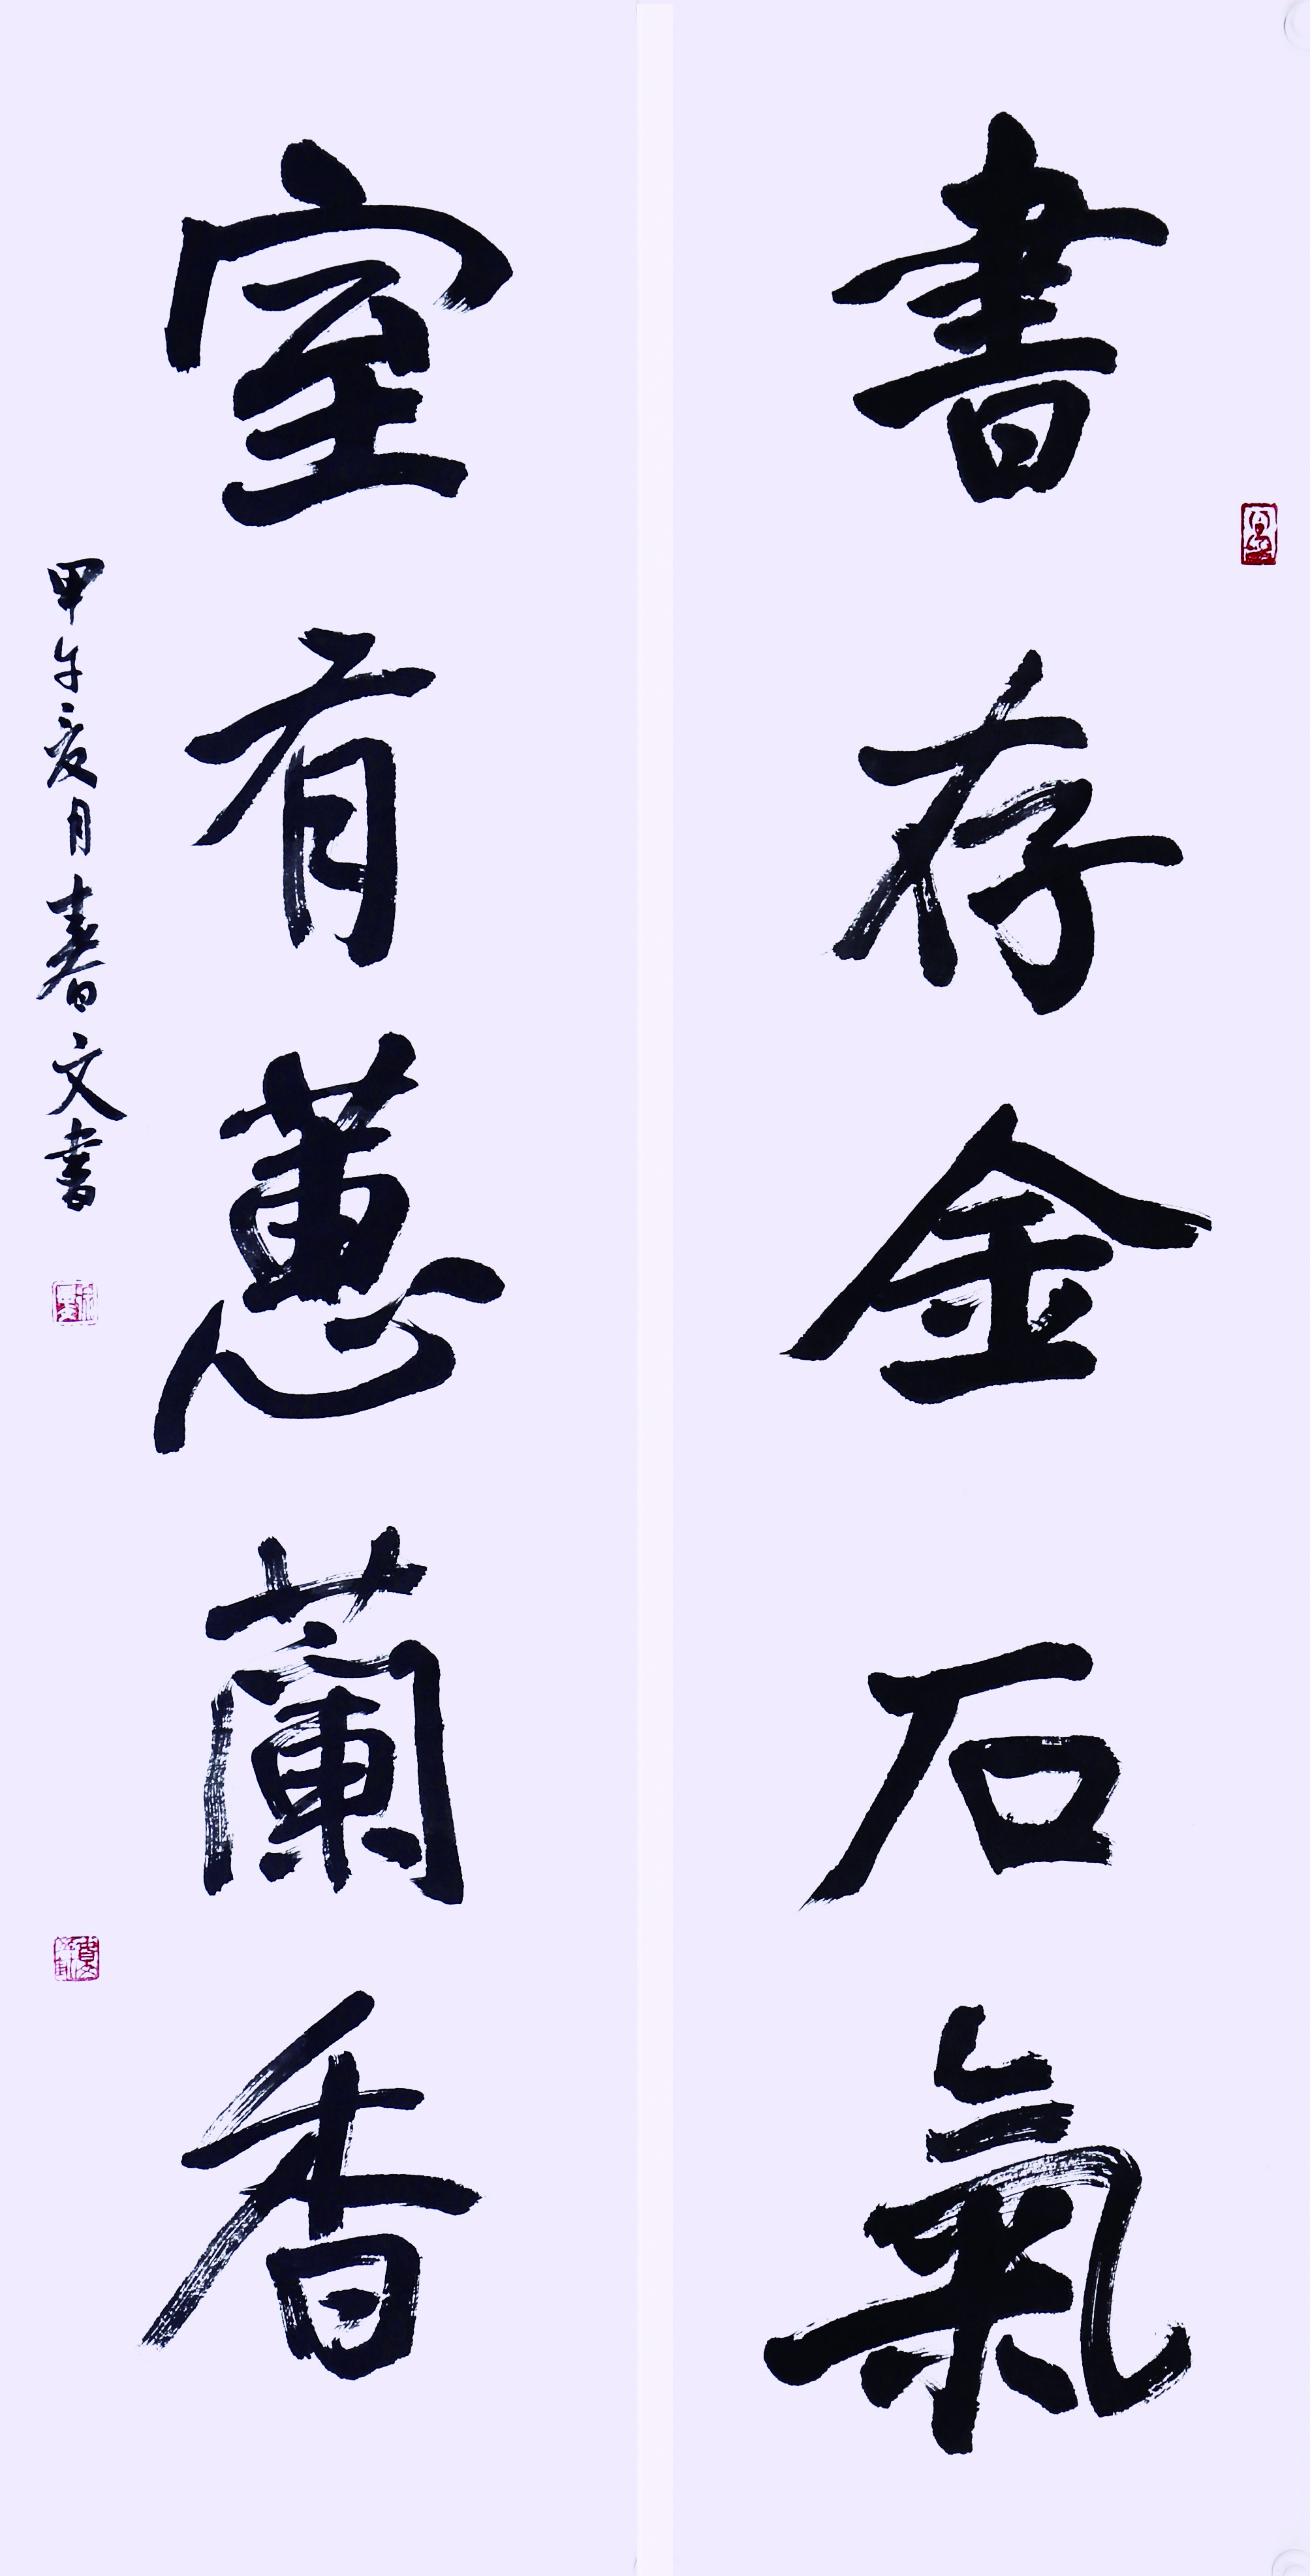 書存金石氣
室有蕙蘭香
甲午夏月春文書